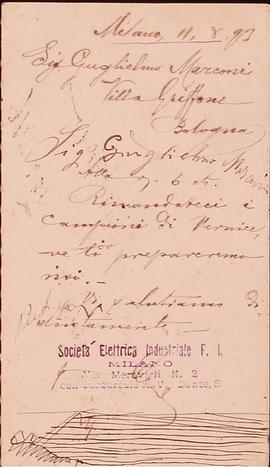 Milano, 11, 8. 93
Sig Guglielmo Marconi
Villa Griffone
Bologna
Sig Guglielmo
Alla 6
Rimandateci i
Campioni di Vernice,
ve li prepareremo
noi. -
salutiamo di
stintamente
Società Elettrica Industriale F. I.
MILANO
Via Meravigli N. 2
con Succursale V. Dante, 5